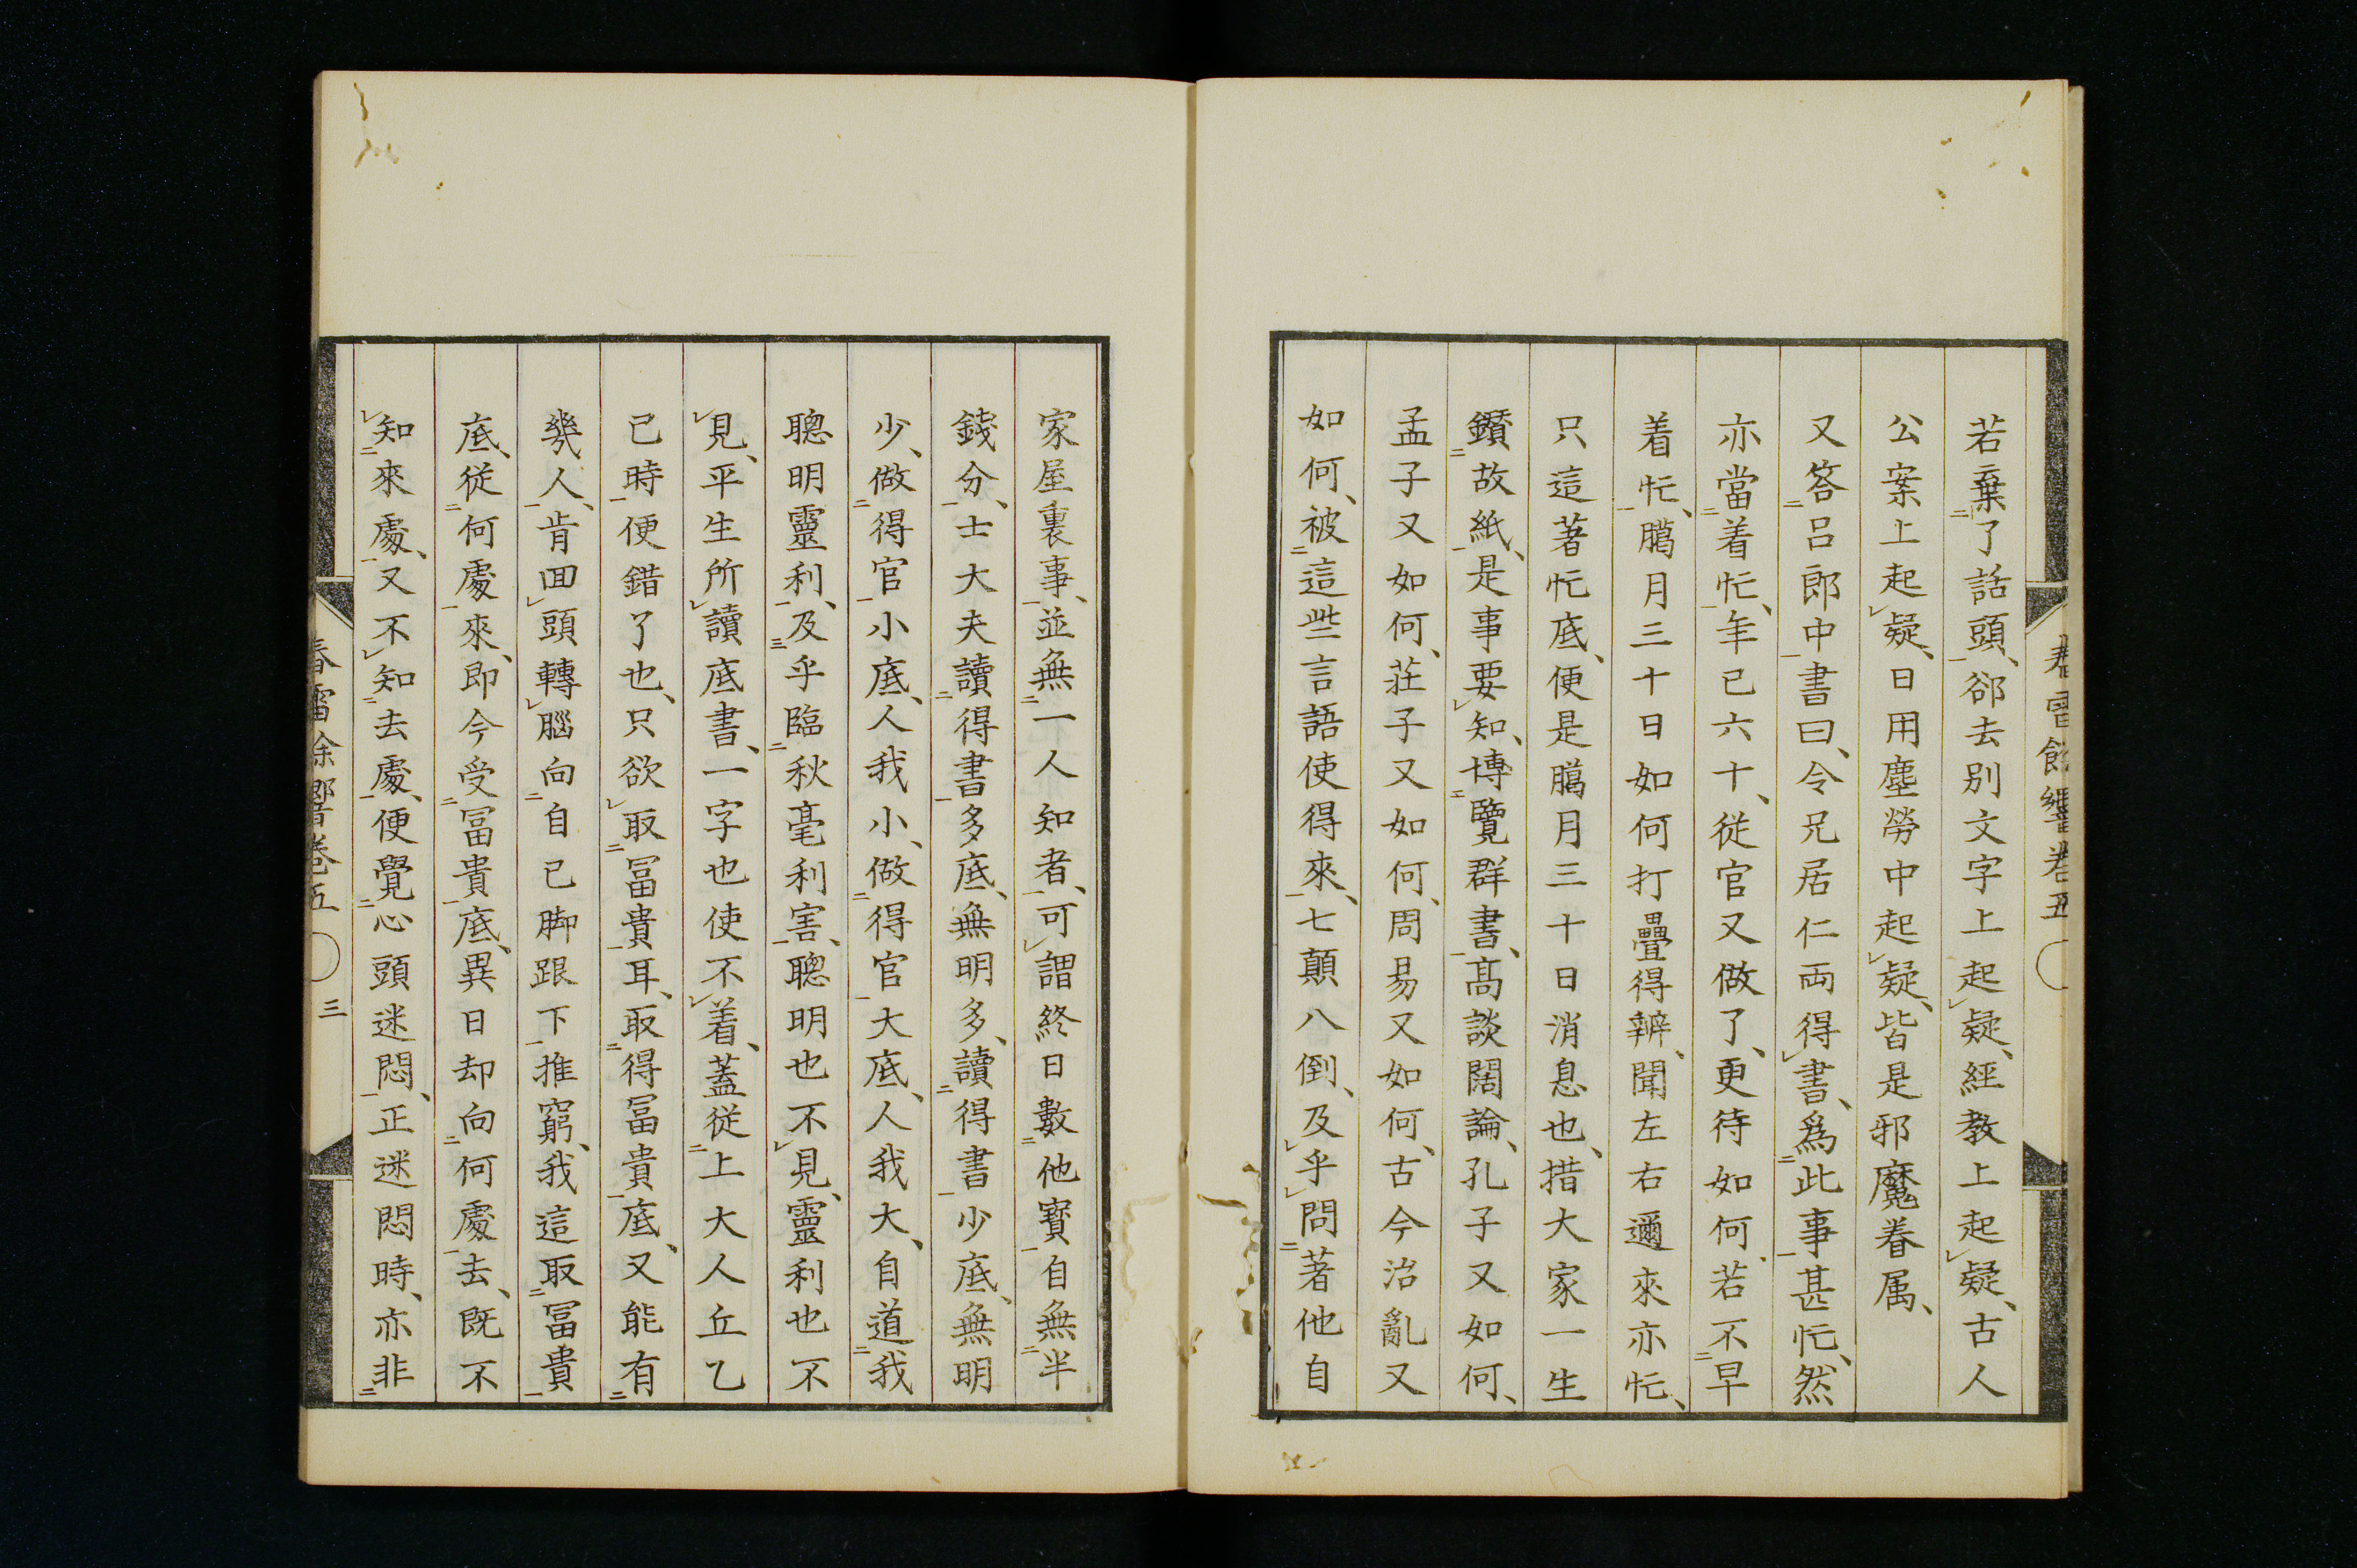 春雷餘響卷五
若棄了話頭、郤去別文字上起疑、經教上起疑、古人
公案上起疑、日用塵勞中起疑、皆是邪魔眷属、
又答呂郎中書曰、令兄居仁両得書、爲此事甚忙、然
亦當着忙、年已六十、從官又做了、更待如何、若不早
着忙、臈月三十日如何打疊得辦、聞左右邇來亦忙、
只這著忙底、便是臈月三十日消息也、措大家一生
鑽故紙、是事要知、博覽群書、高談闊論、孔子又如何、
孟子又如何、荘子又如何、周易又如何、古今治亂又
如何、被這些言語使得來、七顛八倒、及乎問著他自
家屋裏事、並無一人知者、可謂終日數他寶自無半
錢分、士大夫讀得書多底、無明多、讀得書少底、無明
少、做得官小底、人我小、做得官大底、人我大、自道我
聰明靈利、及乎臨秋毫利害、聰明也不見、靈利也不
見、平生所讀底書、一字也使不着、蓋從上大人丘乙
已時便錯了也、只欲取冨貴耳、取得冨貴底、又能有
幾人、肯回頭轉腦向自己脚跟下推窮、我這取冨貴
底、從何處來、即今受冨貴底、異日却向何處去、既不
知來處、又不知去處、便覺心頭迷悶、正迷悶時、亦非
春雷餘響卷五
三